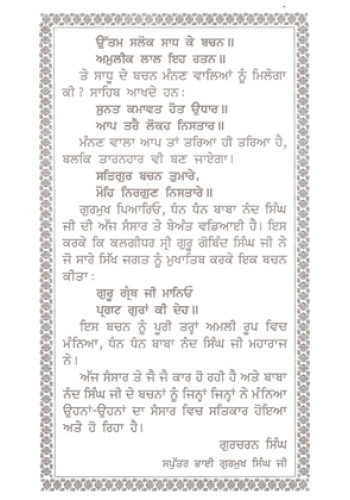 ਉੱਤਮ ਸਲੋਕ ਸਾਧ ਕੇ ਬਚਨ॥
ਅਮੁਲੀਕ ਲਾਲ ਇਹ ਰਤਨ॥
ਤੇ ਸਾਧੂ ਦੇ ਬਚਨ ਮੰਨਣ ਵਾਲਿਆਂ ਨੂੰ ਮਿਲੇਗਾ
ਕੀ ? ਸਾਹਿਬ ਆਖਦੇ ਹਨ:
ਸੁਨਤ ਕਮਾਵਤ ਹੋਤ ਉਧਾਰ॥
ਆਪ ਤਰੈ ਲੋਕਹ ਨਿਸਤਾਰ॥
ਮੰਨਣ ਵਾਲਾ ਆਪ ਤਾਂ ਤਰਿਆ ਹੀ ਤਰਿਆ ਹੈ,
ਬਲਕਿ ਤਾਰਨਹਾਰ ਵੀ ਬਣ ਜਾਏਗਾ।
ਸਤਿਗੁਰ ਬਚਨ ਤੁਮਾਰੇ,
ਮੋਹਿ ਨਿਰਗੁਣ ਨਿਸਤਾਰੇ॥
ਗੁਰਮੁਖ ਪਿਆਰਿਓ, ਧੰਨ ਧੰਨ ਬਾਬਾ ਨੰਦ ਸਿੰਘ
ਜੀ ਦੀ ਅੱਜ ਸੰਸਾਰ ਤੇ ਬੇਅੰਤ ਵਡਿਆਈ ਹੈ। ਇਸ
ਕਰਕੇ ਕਿ ਕਲਗੀਧਰ ਸ੍ਰੀ ਗੁਰੂ ਗੋਬਿੰਦ ਸਿੰਘ ਜੀ ਨੇ
ਜੋ ਸਾਰੇ ਸਿੱਖ ਜਗਤ ਨੂੰ ਮੁਖਾਤਿਬ ਕਰਕੇ ਇਕ ਬਚਨ
ਕੀਤਾ:
ਗੁਰੂ ਗ੍ਰੰਥ ਜੀ ਮਾਨਿਓ
ਪ੍ਰਗਟ ਗੁਰਾਂ ਕੀ ਦੇਹ॥
ਇਸ ਬਚਨ ਨੂੰ ਪੂਰੀ ਤਰ੍ਹਾਂ ਅਮਲੀ ਰੂਪ ਵਿਚ
ਮੰਨਿਆ, ਧੰਨ ਧੰਨ ਬਾਬਾ ਨੰਦ ਸਿੰਘ ਜੀ ਮਹਾਰਾਜ
ਨੇ।
ਅੱਜ ਸੰਸਾਰ ਤੇ ਜੈ ਜੈ ਕਾਰ ਹੋ ਰਹੀ ਹੈ ਅਤੇ ਬਾਬਾ
ਨੰਦ ਸਿੰਘ ਜੀ ਦੇ ਬਚਨਾਂ ਨੂੰ ਜਿਨ੍ਹਾਂ ਜਿਨ੍ਹਾਂ ਨੇ ਮੰਨਿਆ
ਉਹਨਾਂ-ਉਹਨਾਂ ਦਾ ਸੰਸਾਰ ਵਿਚ ਸਤਿਕਾਰ ਹੋਇਆ
ਅਤੇ ਹੋ ਰਿਹਾ ਹੈ।
ਗੁਰਚਰਨ ਸਿੰਘ
ਸਪੁੱਤਰ ਭਾਈ ਗੁਰਮੁਖ ਸਿੰਘ ਜੀ